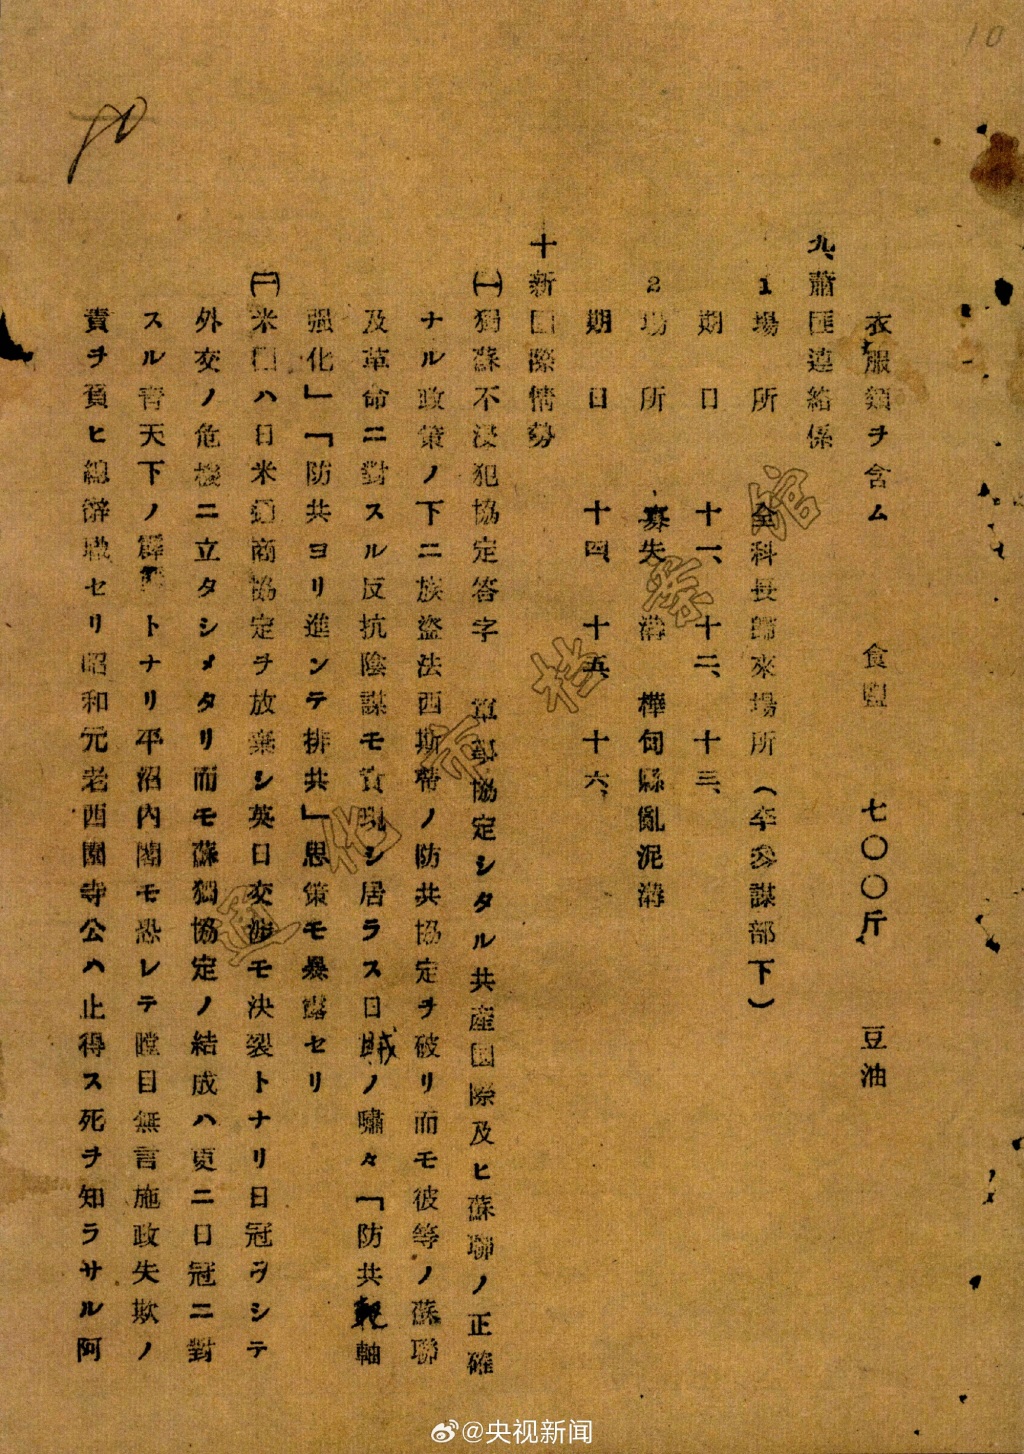 10
衣服類ヲ含ム 食鹽 七〇〇斤 豆油
九、蕭匯連絡係
1 場所 全科長歸來場所(李參謀部下)
期日 十一、十二、十三、
2 場所 寡失溝 樺甸縣亂泥溝
期日 十四、十五、十六、
十 新國際情勢
(一)獨蘇不浸犯協定答字 軍事協定シタル共產国際及ヒ蘇聯ノ正確
ナル政策ノ下ニ族盜法西斯帶ノ防共協定ヲ破リ而モ彼等ノ蘇聯
及革命ニ對スル反抗陰謀モ實現シ居ラス日賊ノ嘯々「防共軸
强化」「防共ヨリ進ンテ排共」思策モ暴露セリ
(二)米國ハ日米通商協定ヲ放棄シ英日交涉モ決裂トナリ日冠ヲシテ
外交ノ危機ニ立タシメタリ而モ蘇獨協定ノ結成ハ更ニ日冠ニ對
スル青天下ノ霹トナリ平沼內閣モ恐レテ瞠目無言施政失欺ノ
責ヲ負ヒ總辭職セリ昭和元老西園寺公ハ止得ス死ヲ知ラサル阿
通化市档案馆
@央视新闻